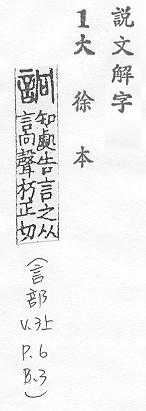 説文解字
1大徐本
詗
知處告言之从
言冋聲朽正切
(言部
V.3上
P.6
B.3)